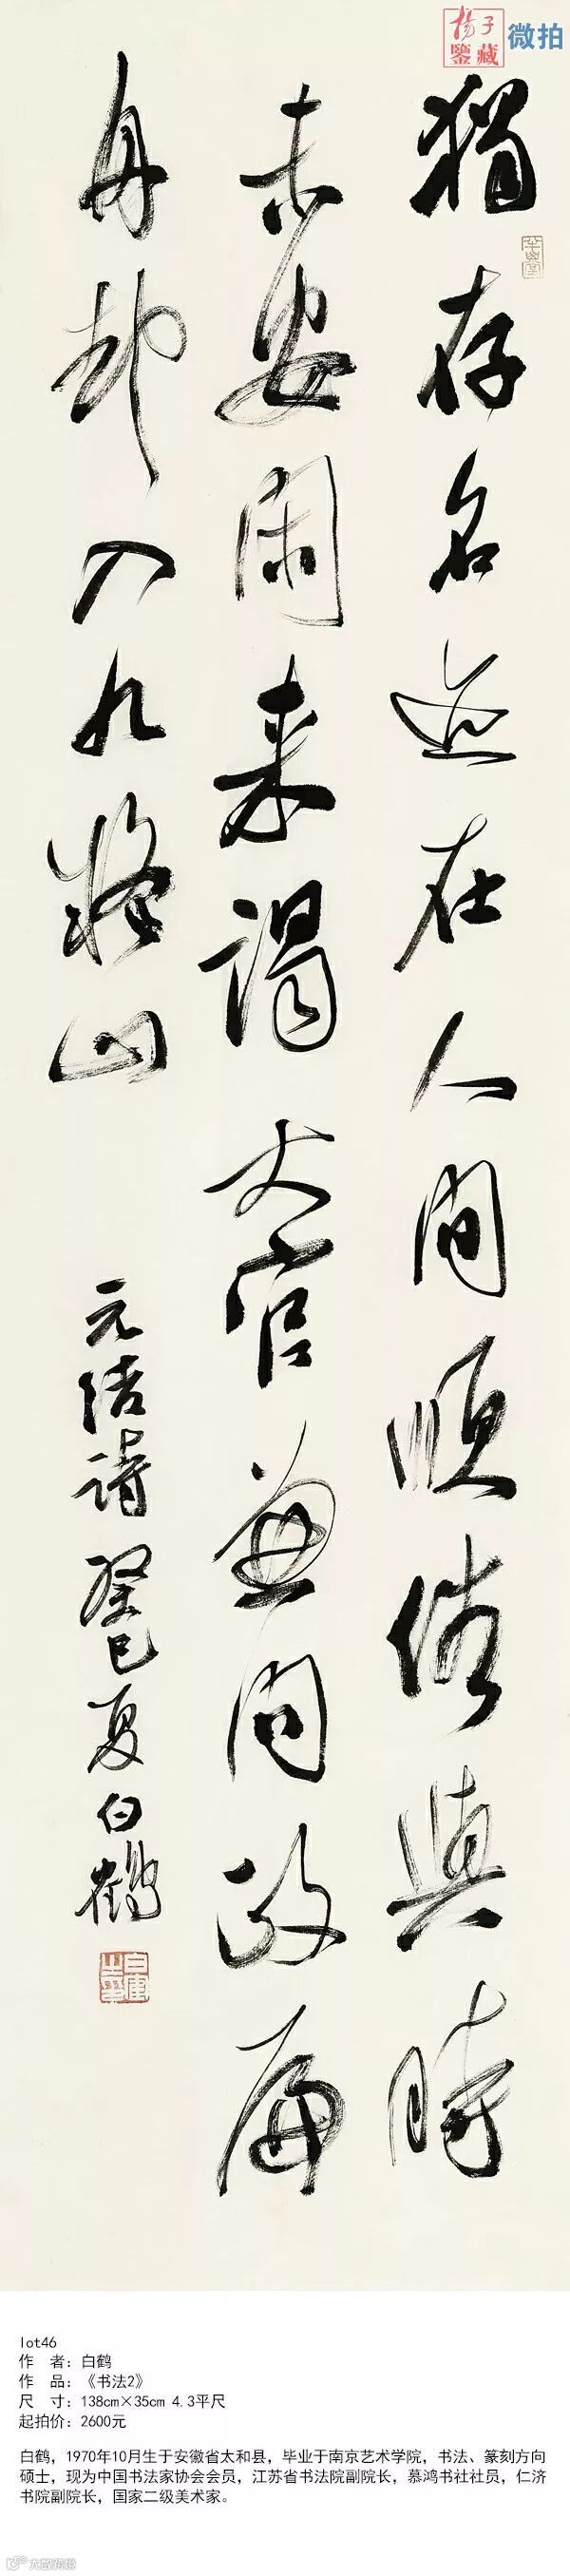 楊子
鑒藏
微拍
獨存名迹在人間順俗與時
未安閑来謁大官兼問政扁
舟却入九疑山
元结詩 癸巳夏 白鶴
lot46
作 者：白鹤
作 品：《书法2》
尺 寸：138cm×35cm 4.3平尺
起拍价：2600元
白鹤，1970年10月生于安徽省太和县，毕业于南京艺术学院，书法、篆刻方向
硕士，现为中国书法家协会会员，江苏省书法院副院长，慕鸿书社社员，仁济
书院副院长，国家二级美术家。